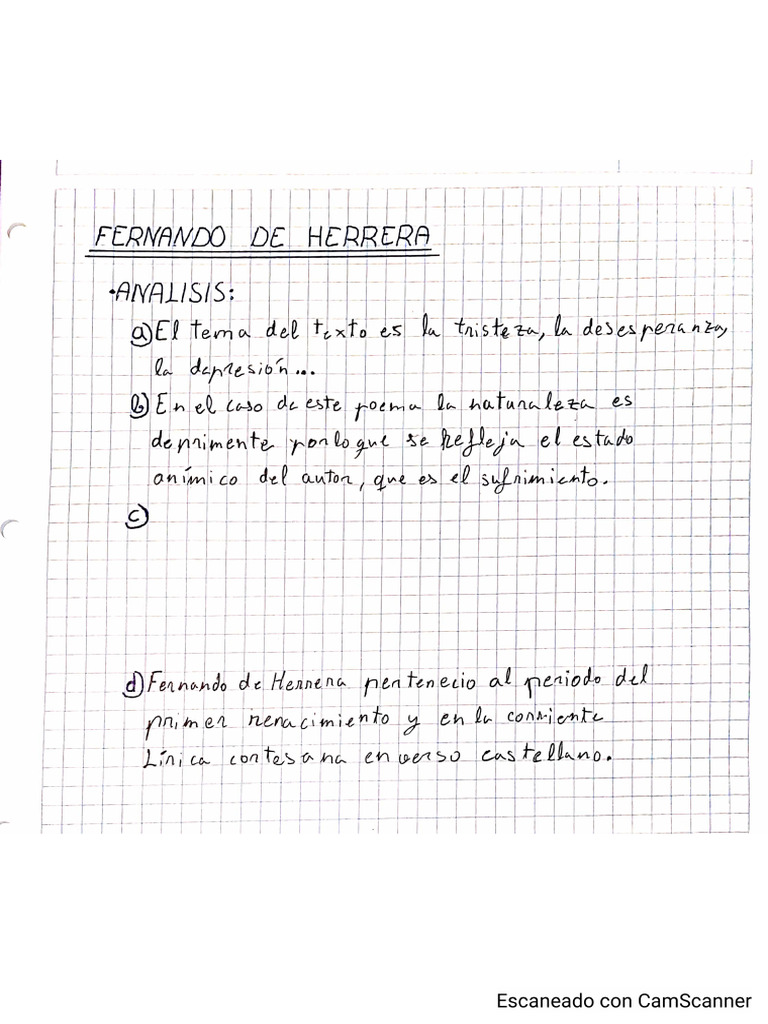 FERNANDO DE HERRERA
•ANALISIS:
a) El tema del texto es la tristeza, la desesperanza,
la depresión...
b) En el caso de este poema la naturaleza es
deprimente por lo que se refleja el estado
anímico del autor, que es el sufrimiento.
c)
d) Fernando de Herrera pertenecio al periodo del
primer renacimiento y en la corriente
Lírica cortesana en verso castellano.
Escaneado con CamScanner